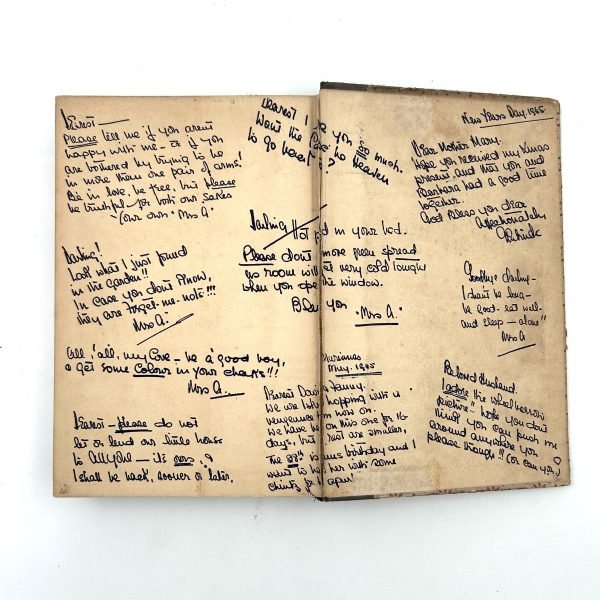 Dearest —
Please tell me if you aren't
happy with me — or if you
are bothered by trying to be
in more than one pair of arms!
Be in love, be free, but please
be truthful — for both our sakes
Your own "Mrs A."
Darling!
Look what I just found
in the garden!!
In case you don't know,
they are forget-me-nots!!!
Mrs A.
All, all, my love — be a good boy,
& get some colour in your cheeks!!!
Mrs A.
Dearest — please do not
let or lend our little house
to
I shall be back, sooner or later.
Dearest I you too much.
Want the no Heaven
to go
Darling Hot in your bed.
Please don't more green spread
as room will get very cold
when you open the window.
you
"Mrs A."
Marianas
May. 1945
Dearest &
We are hopping with a
vengeance now on.
We have on this one for 16
days, but are smaller.
The is my birthday and I
want to her with some
chintz for
New Years Day. 1945.
Dear Mother Mary.
Hope you received my Xmas
present, and that you and
Barbara had a good time
together.
God bless you dear
Affectionately
Goodbye darling —
I shan't be long —
be good — eat well —
and sleep — alone!!
Mrs A
Beloved Husband.
I adore the wheelbarrow
picture!! hope you don't
think you can push me
around anywhere you
please though!!! (Or can you?)